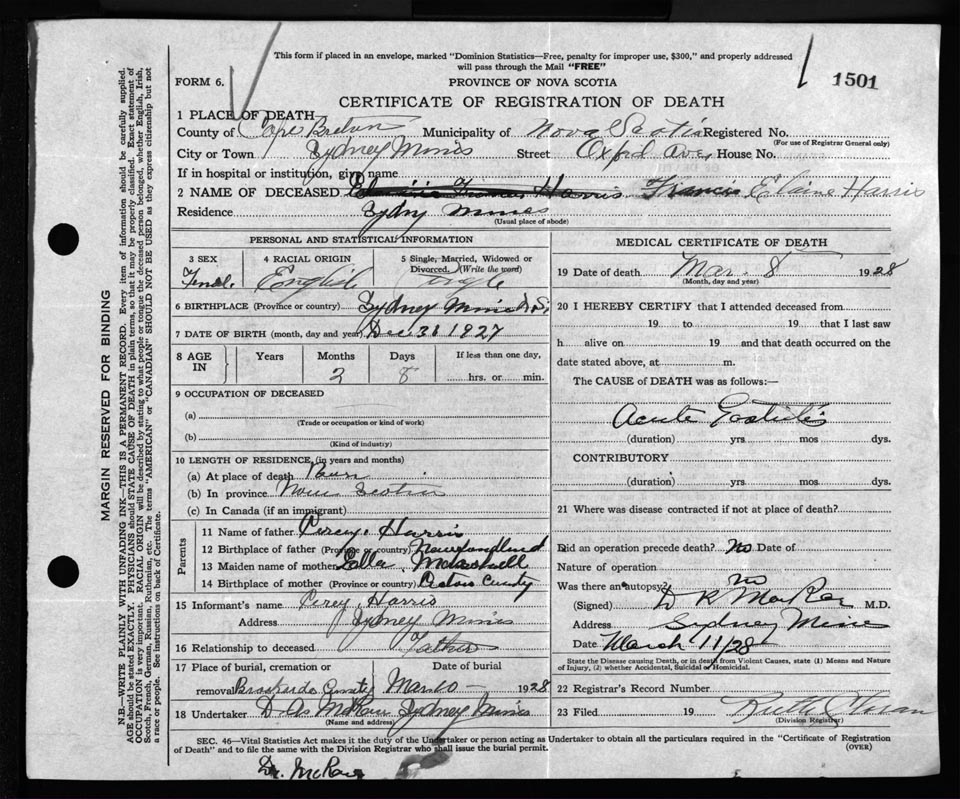 This form if placed in an envelope, marked "Dominion Statistics—Free, penalty for improper use, $300," and properly addressed
will pass through the Mail "FREE"
FORM 6.
PROVINCE OF NOVA SCOTIA
1501
CERTIFICATE OF REGISTRATION OF DEATH
1 PLACE OF DEATH
County of Cape Breton Municipality of Nova Scotia Registered No.
(For use of Registrar General only)
City or Town Sydney Mines Street Oxford Ave, House No.
If in hospital or institution, give name
2 NAME OF DECEASED Francis Harris Francis Elaine Harris
Residence Sydny Mines
(Usual place of abode)
PERSONAL AND STATISTICAL INFORMATION
3 SEX 4 RACIAL ORIGIN 5 Single, Married, Widowed or
Divorced. (Write the word)
Femal. English Single
6 BIRTHPLACE (Province or country) Sydney Mines N.S.
7 DATE OF BIRTH (month, day and year) Dec 31 1927
8 AGE IN Years Months Days If less than one day,
2 8 hrs. or min.
9 OCCUPATION OF DECEASED
(a)
(Trade or occupation or kind of work)
(b)
(Kind of industry)
10 LENGTH OF RESIDENCE, (in years and months)
(a) At place of death Born
(b) In province Nova Scotia
(c) In Canada (if an immigrant)
Parents
11 Name of father Percy Harris
12 Birthplace of father (Province or country) Newfoundland
13 Maiden name of mother Ella
14 Birthplace of mother (Province or country) County
15 Informant's name Percy Harris
Address Sydney Mines
16 Relationship to deceased Father
17 Place of burial, cremation or Date of burial
removal Brookside Cemety Mar 10 1928
18 Undertaker Sydney Mines
(Name and address)
MEDICAL CERTIFICATE OF DEATH
19 Date of death Mar. 8 1928
(Month, day and year)
20 I HEREBY CERTIFY that I attended deceased from
19 to 19 that I last saw
h alive on 19 and that death occurred on the
date stated above, at m.
The CAUSE of DEATH was as follows:—
Acute Gastritis
(duration) yrs. mos dys.
CONTRIBUTORY
(duration) yrs. mos dys.
21 Where was disease contracted if not at place of death?
Did an operation precede death? No Date of
Nature of operation
Was there an autopsy? no
(Signed) D K MacRae M.D.
Address Sydney Mines
Date March 11/28
State the Disease causing Death, or in death from Violent Causes, state (1) Means and Nature
of Injury, (2) whether Accidental, Suicidal or Homicidal.
22 Registrar's Record Number
23 Filed 19
(Division Registrar)
SEC. 46—Vital Statistics Act makes it the duty of the Undertaker or person acting as Undertaker to obtain all the particulars required in the "Certificate of Registration
of Death" and to file the same with the Division Registrar who shall issue the burial permit.
(OVER)
Dr. McRae
MARGIN RESERVED FOR BINDING
N.B.—WRITE PLAINLY WITH UNFADING INK—THIS IS A PERMANENT RECORD. Every item of information should be carefully supplied.
AGE should be stated EXACTLY. PHYSICIANS should STATE CAUSE OF DEATH in plain terms, so that it may be properly classified. Exact statement of
OCCUPATION is very important. RACIAL ORIGIN will be described by stating to what people or tongue the deceased person belonged, whether English, Irish,
Scotch, French, German, Russian, Ruthenian, etc. The terms "AMERICAN" or "CANADIAN" SHOULD NOT BE USED as they express citizenship but not
a race or people. See instructions on back of Certificate.